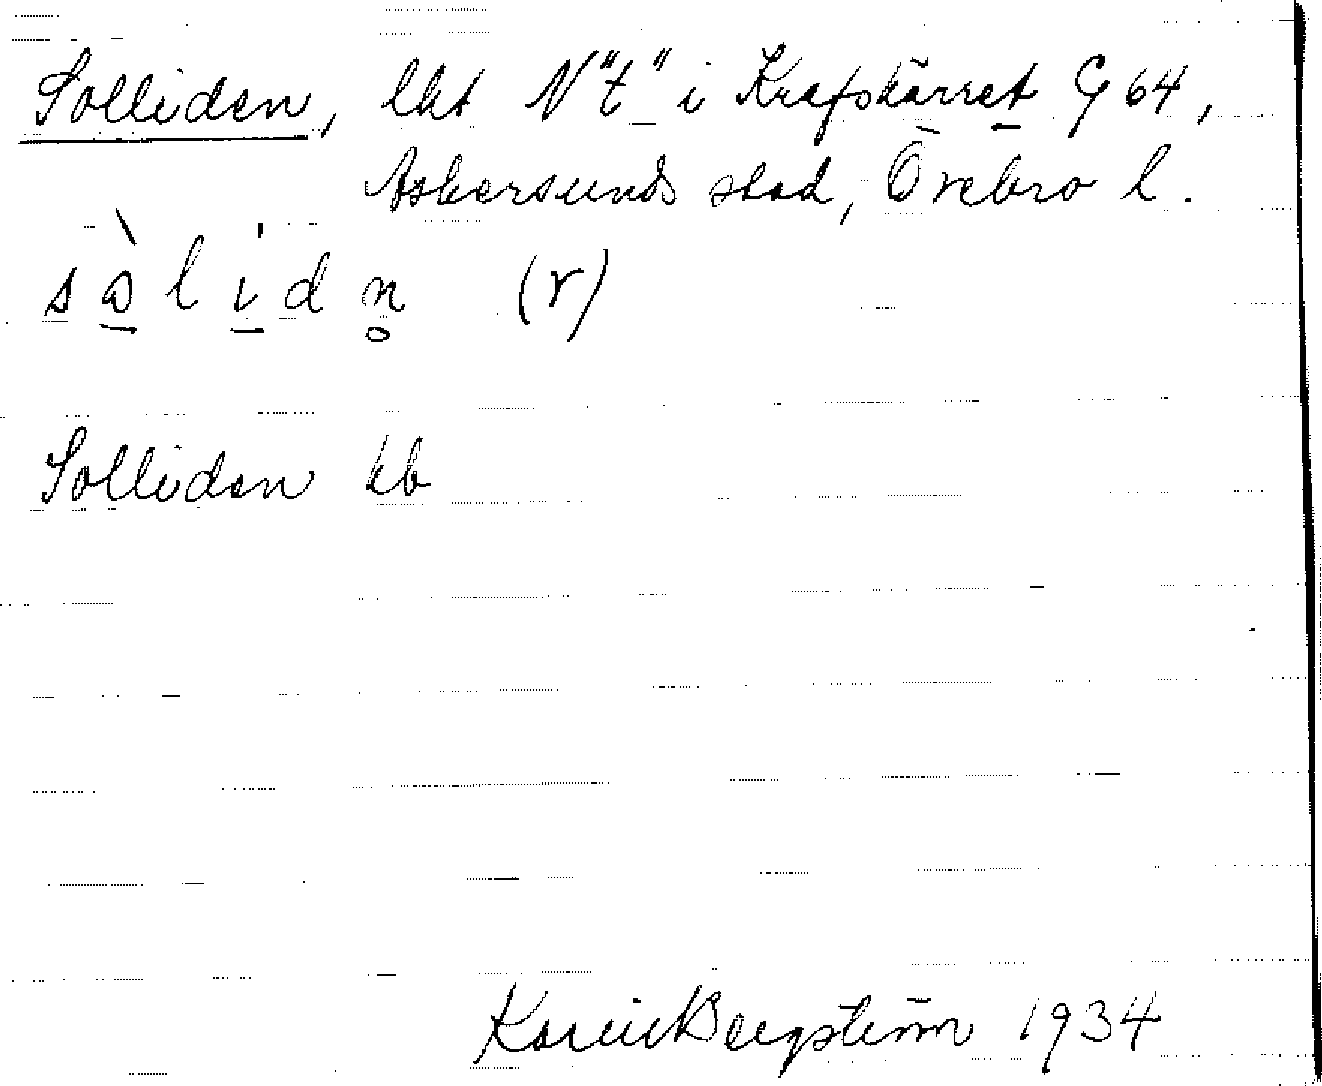 Solliden, lht N "t" i Krafskärret G 64,
Askersunds stad, Örebro l.
sòlidn̥ (r)
Solliden kb
Karin Bergström 1934